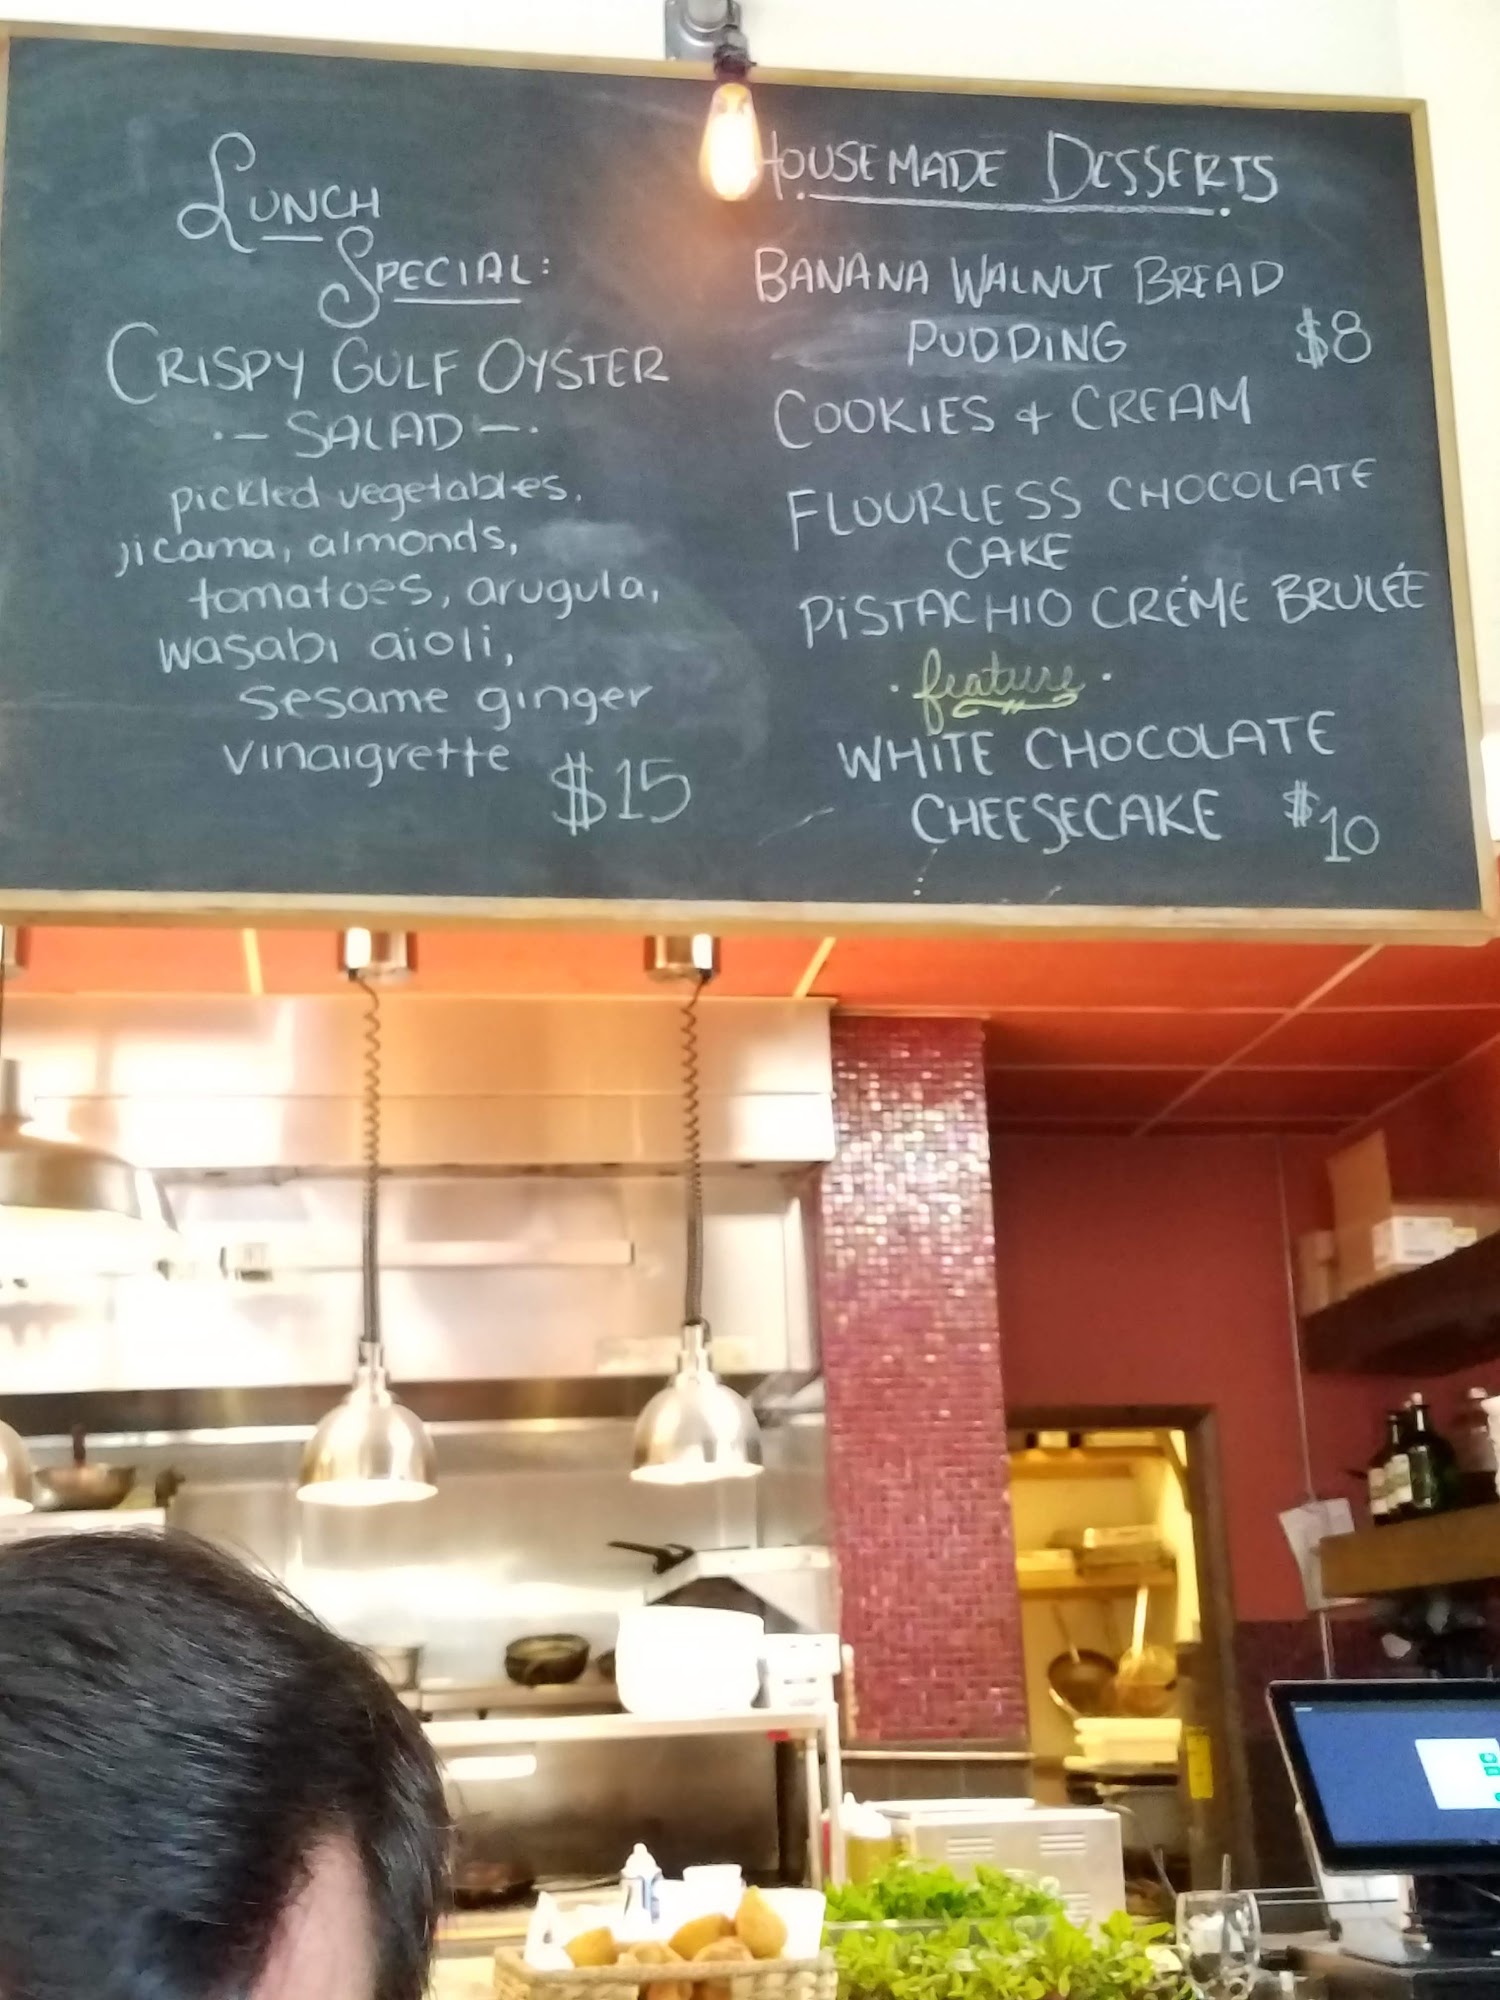 LUNCH
SPECIAL:
CRISPY GULF OYSTER
·– SALAD –·
pickled vegetables,
jicama, almonds,
tomatoes, arugula,
wasabi aioli,
sesame ginger
vinaigrette $15
HOUSEMADE DESSERTS
BANANA WALNUT BREAD
PUDDING $8
COOKIES & CREAM
FLOURLESS CHOCOLATE
CAKE
PISTACHIO CRÉME BRULÉE
· feature ·
WHITE CHOCOLATE
CHEESECAKE $10